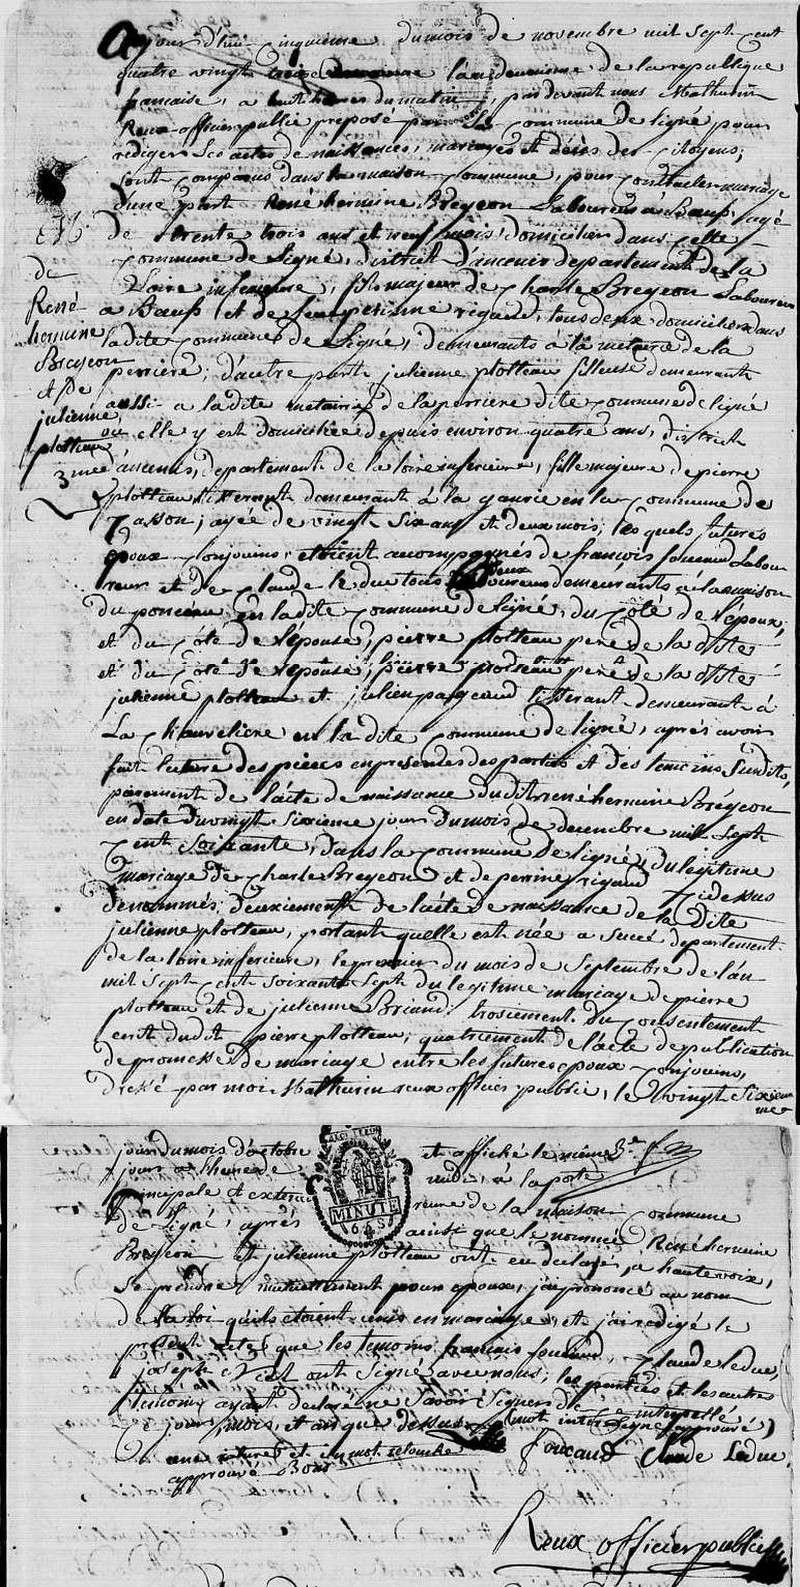 Aujourd'hui cinquieme du mois de novembre mil sept cent
quatre vingt treize l'an deuxieme de la republique
française, a huit heures du matin, par devant nous Mathurin
Reux officier public preposé par la commune de ligné pour
rediger les actes de naissances, mariages et décès des citoyens,
sont comparus dans la maison commune, pour contracter mariage
d'une part René hermine Bregeon Laboureur à Bœufs agé
de trente trois ans et neuf mois, domicilier dans cette
commune de Ligné, district d'ancenis departement de la
Loire inferieure, fils majeur de Charle Bregeon Laboureur
a Bœufs et de perinne rigaud, tous deux domiciliers dans
la dite commune de Ligné, demeurants a la metairie de la
perriere; d'autre part julienne plotteau filleuse demeurante
aussi a la dite metairie de la perriere dite commune de ligné
ou elle y est domiciliée depuis environ quatre ans, district
d'ancenis, departement de la loire inferieure, fille majeure de pierre
plotteau tisserant demeurant à la en la commune de
agée de vingt six ans et deux mois; les quels futures
époux conjoints etoient accompagnés de françois foucaud Labou
reur et de claude le duc tous deux Laboureurs demeurants a la maison
du ponceau en la dite commune de Ligné, du côté de l'époux;
et du côté de l'épouse, pierre plotteau pere de la dite
et du côté de l'épouse, pierre plotteau pere de la dite
julienne plotteau et julien pageaud tisserant demeurant à
La chauveliere en la dite commune de ligné, après avoir
fait lecture des pieces en presences des parties et des temoins susdits,
de l'acte de naissance du dit rené hermine Brégeon
en date du vingt sixieme jour du mois de decembre mil sept
cent soixante, dans la commune de ligné, du legitime
mariage de charle Bregeon et de perrine rigaud cidessus
denommés; deuxiement de l'acte de naissance de la dite
julienne plotteau, portant quelle est née a sucé departement
de la loire inferieure, le premier du mois de septembre de l'an
mil sept cent soixante sept du legitime mariage de pierre
plotteau et de julienne Briand; troisiement du consentement
ecrit du dit pierre plotteau, quatriement de l'acte de publication
de promesse de mariage entre les futures epoux conjoints,
dressé par moi Mathurin reux officier public, le vingt sixieme
René
hermine
Bregeon
et De
julienne
plotteau
jour du mois d'octobre et affiché le même
jours a l'heure de midi, à la porte
principale et exterieure de la maison commune
de Ligné, après ainsi que le nommé René hermine
Bregeon et julienne plotteau ont eu declaré, a haute voix,
se prendre mutuellement pour epoux, j'ai prononcé au nom
de la loi qu'ils etoient unis en mariage, et j'ai redigé le
present acte que les temoins français foucaud, claude leduc,
joseph ont signé avec nous; les parties et les autres
temoins ayant declaré ne savoir signer de ce interpellé
ce jour, mois, et an que dessus (mot interligné approuvé)
une rature et un mot retouché
approuvé Bons
MINUTE
Foucaud Claude Leduc
Reux officier public